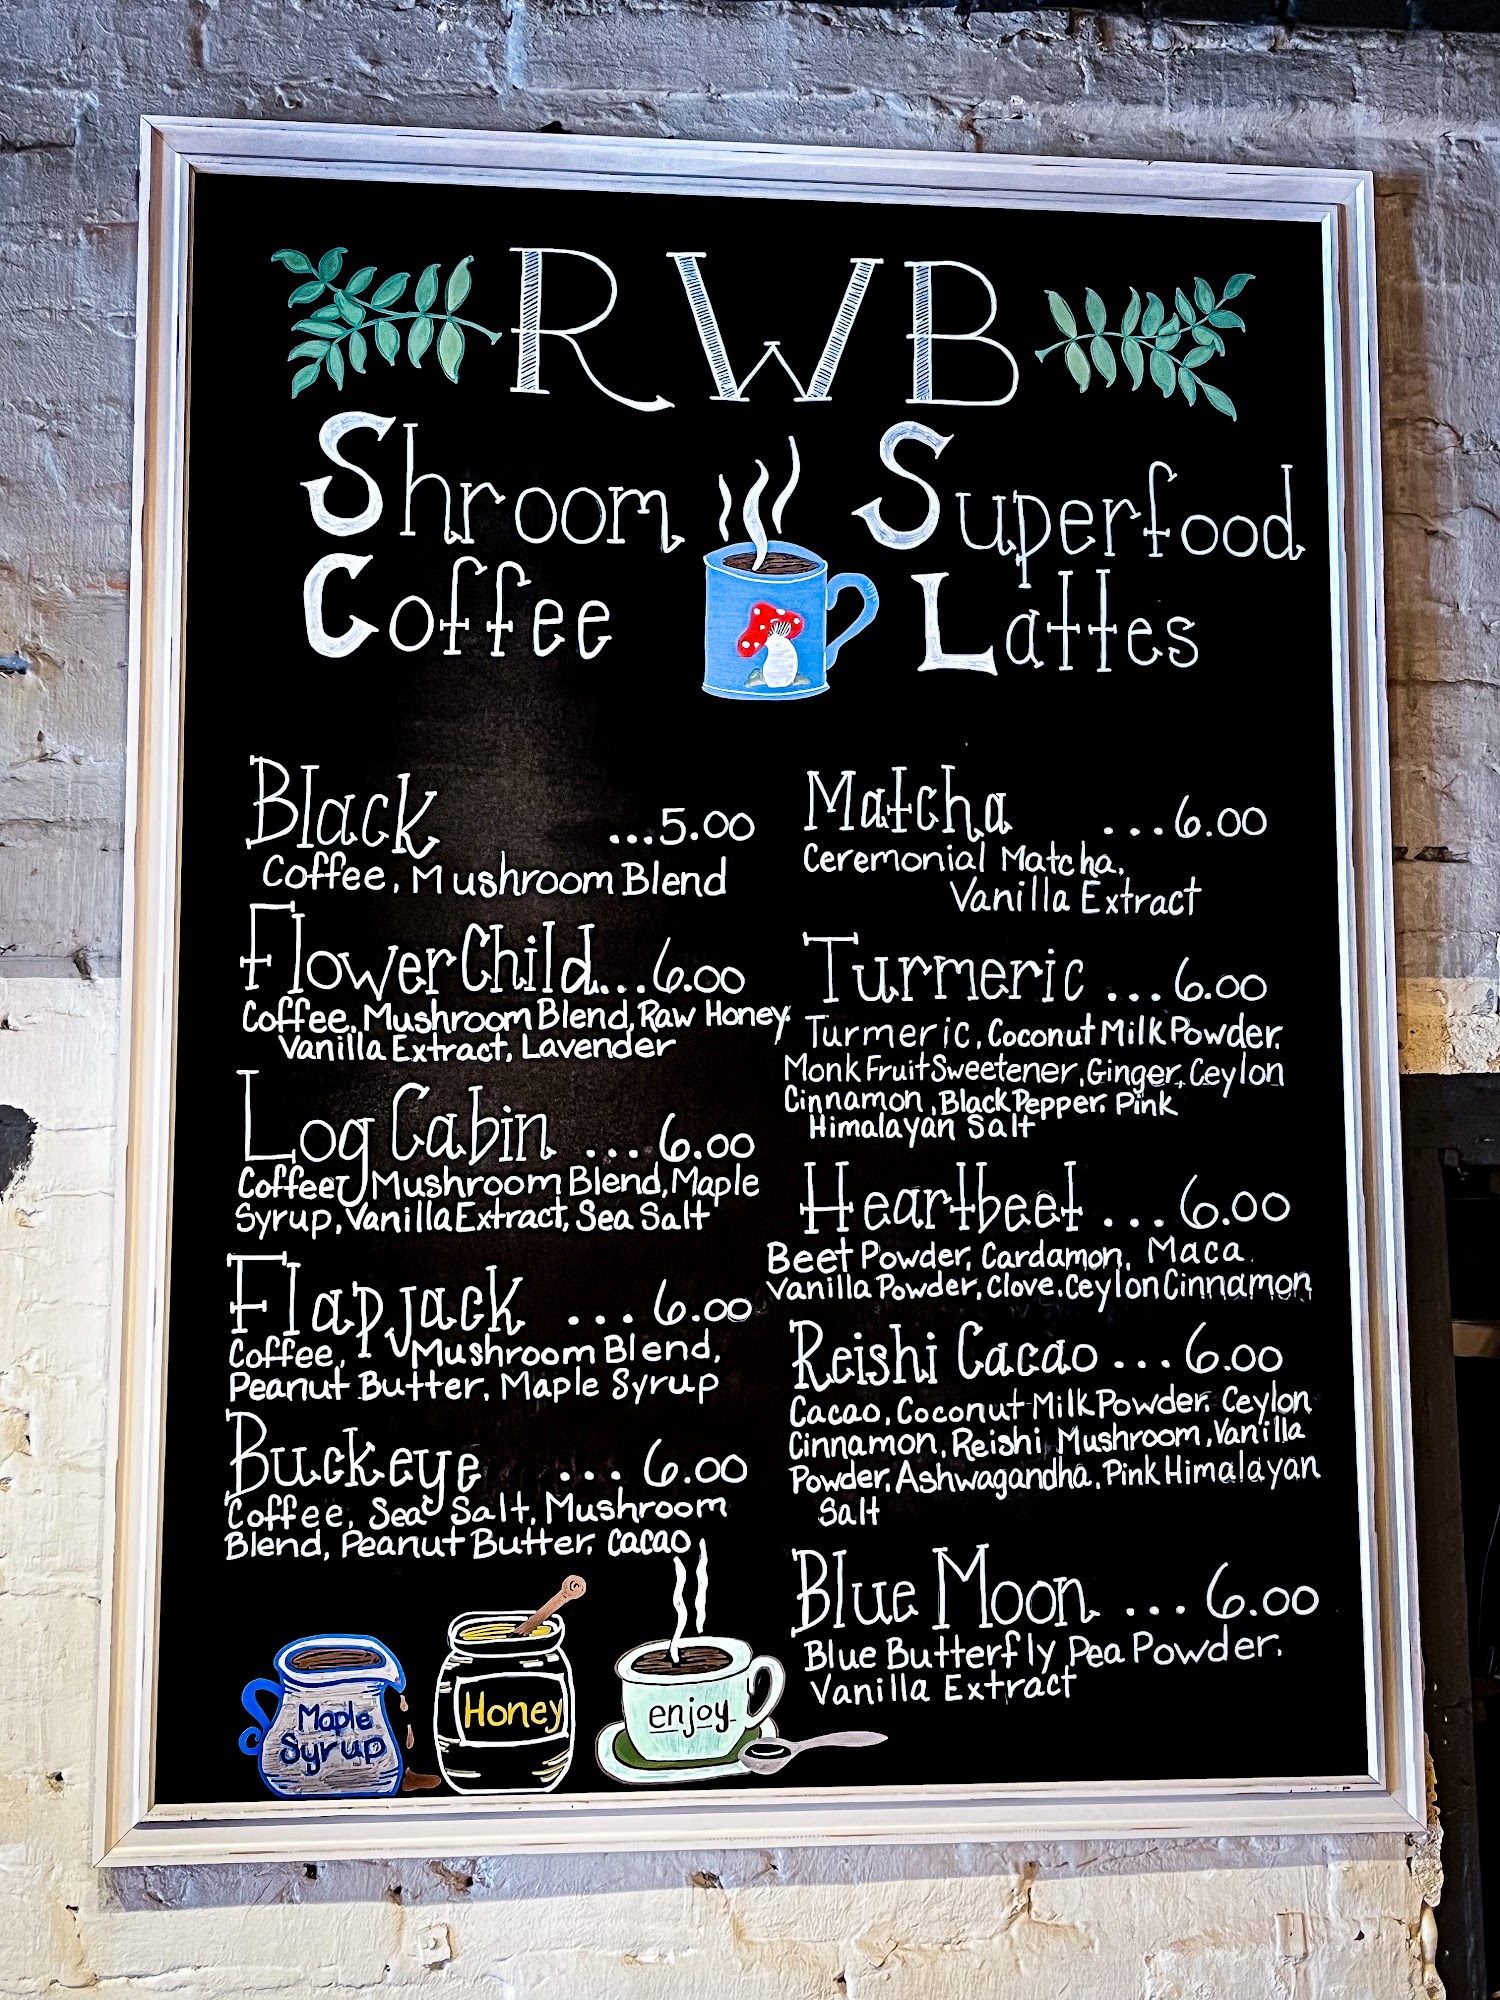 RWB
Shroom
Coffee
Superfood
Lattes
Black ...5.00
Coffee, Mushroom Blend
Flower Child...6.00
Coffee, Mushroom Blend, Raw Honey,
Vanilla Extract, Lavender
Log Cabin ...6.00
Coffee, Mushroom Blend, Maple
Syrup, Vanilla Extract, Sea Salt
Flapjack ...6.00
Coffee, Mushroom Blend,
Peanut Butter, Maple Syrup
Buckeye ...6.00
Coffee, Sea Salt, Mushroom
Blend, Peanut Butter, Cacao
Matcha ...6.00
Ceremonial Matcha,
Vanilla Extract
Turmeric ...6.00
Turmeric, Coconut Milk Powder,
Monk Fruit Sweetener, Ginger, Ceylon
Cinnamon, Black Pepper, Pink
Himalayan Salt
Heartbeet ...6.00
Beet Powder, Cardamon, Maca,
Vanilla Powder, Clove, Ceylon Cinnamon
Reishi Cacao ...6.00
Cacao, Coconut Milk Powder, Ceylon
Cinnamon, Reishi Mushroom, Vanilla
Powder, Ashwagandha, Pink Himalayan
Salt
Blue Moon ...6.00
Blue Butterfly Pea Powder,
Vanilla Extract
Maple
Syrup
Honey
enjoy